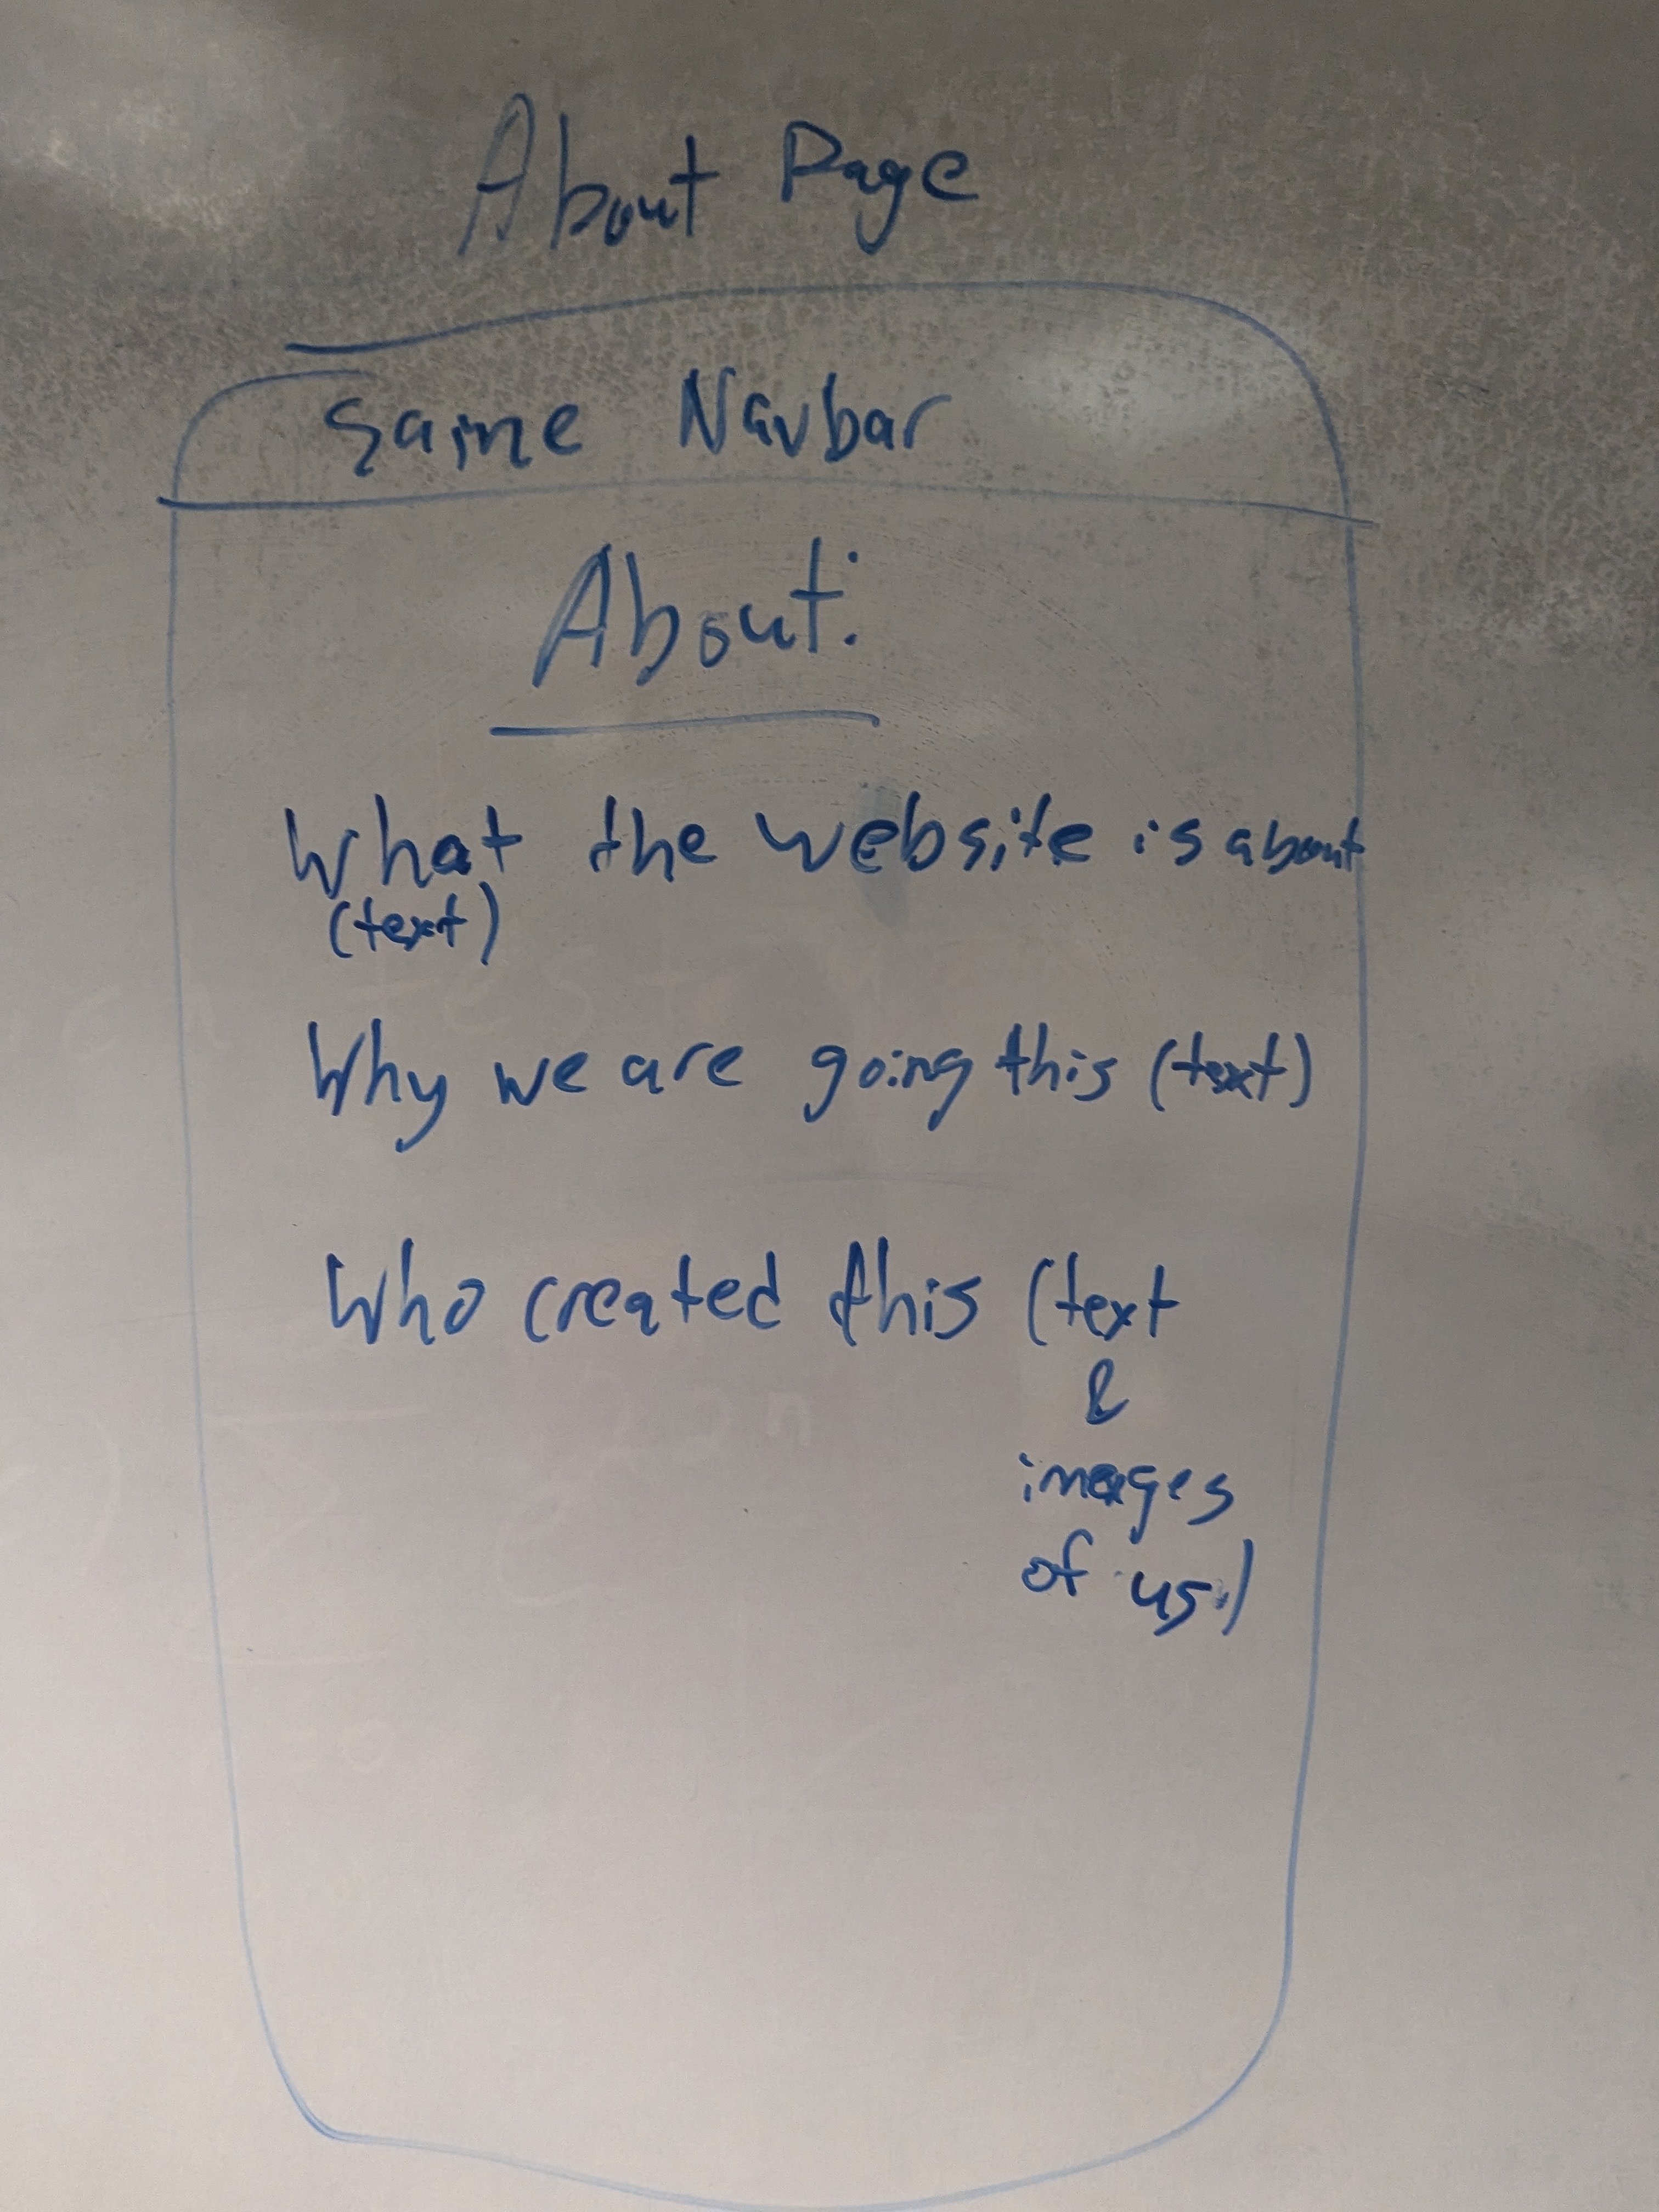 About Page
Same Navbar
About:
What the website is about
(text)
Why we are going this (text)
Who created this (text
&
images
of us.)